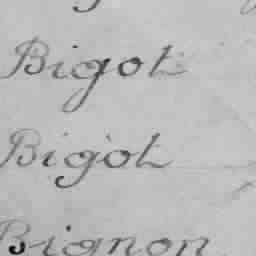 Bigot
Bigot
Bignon